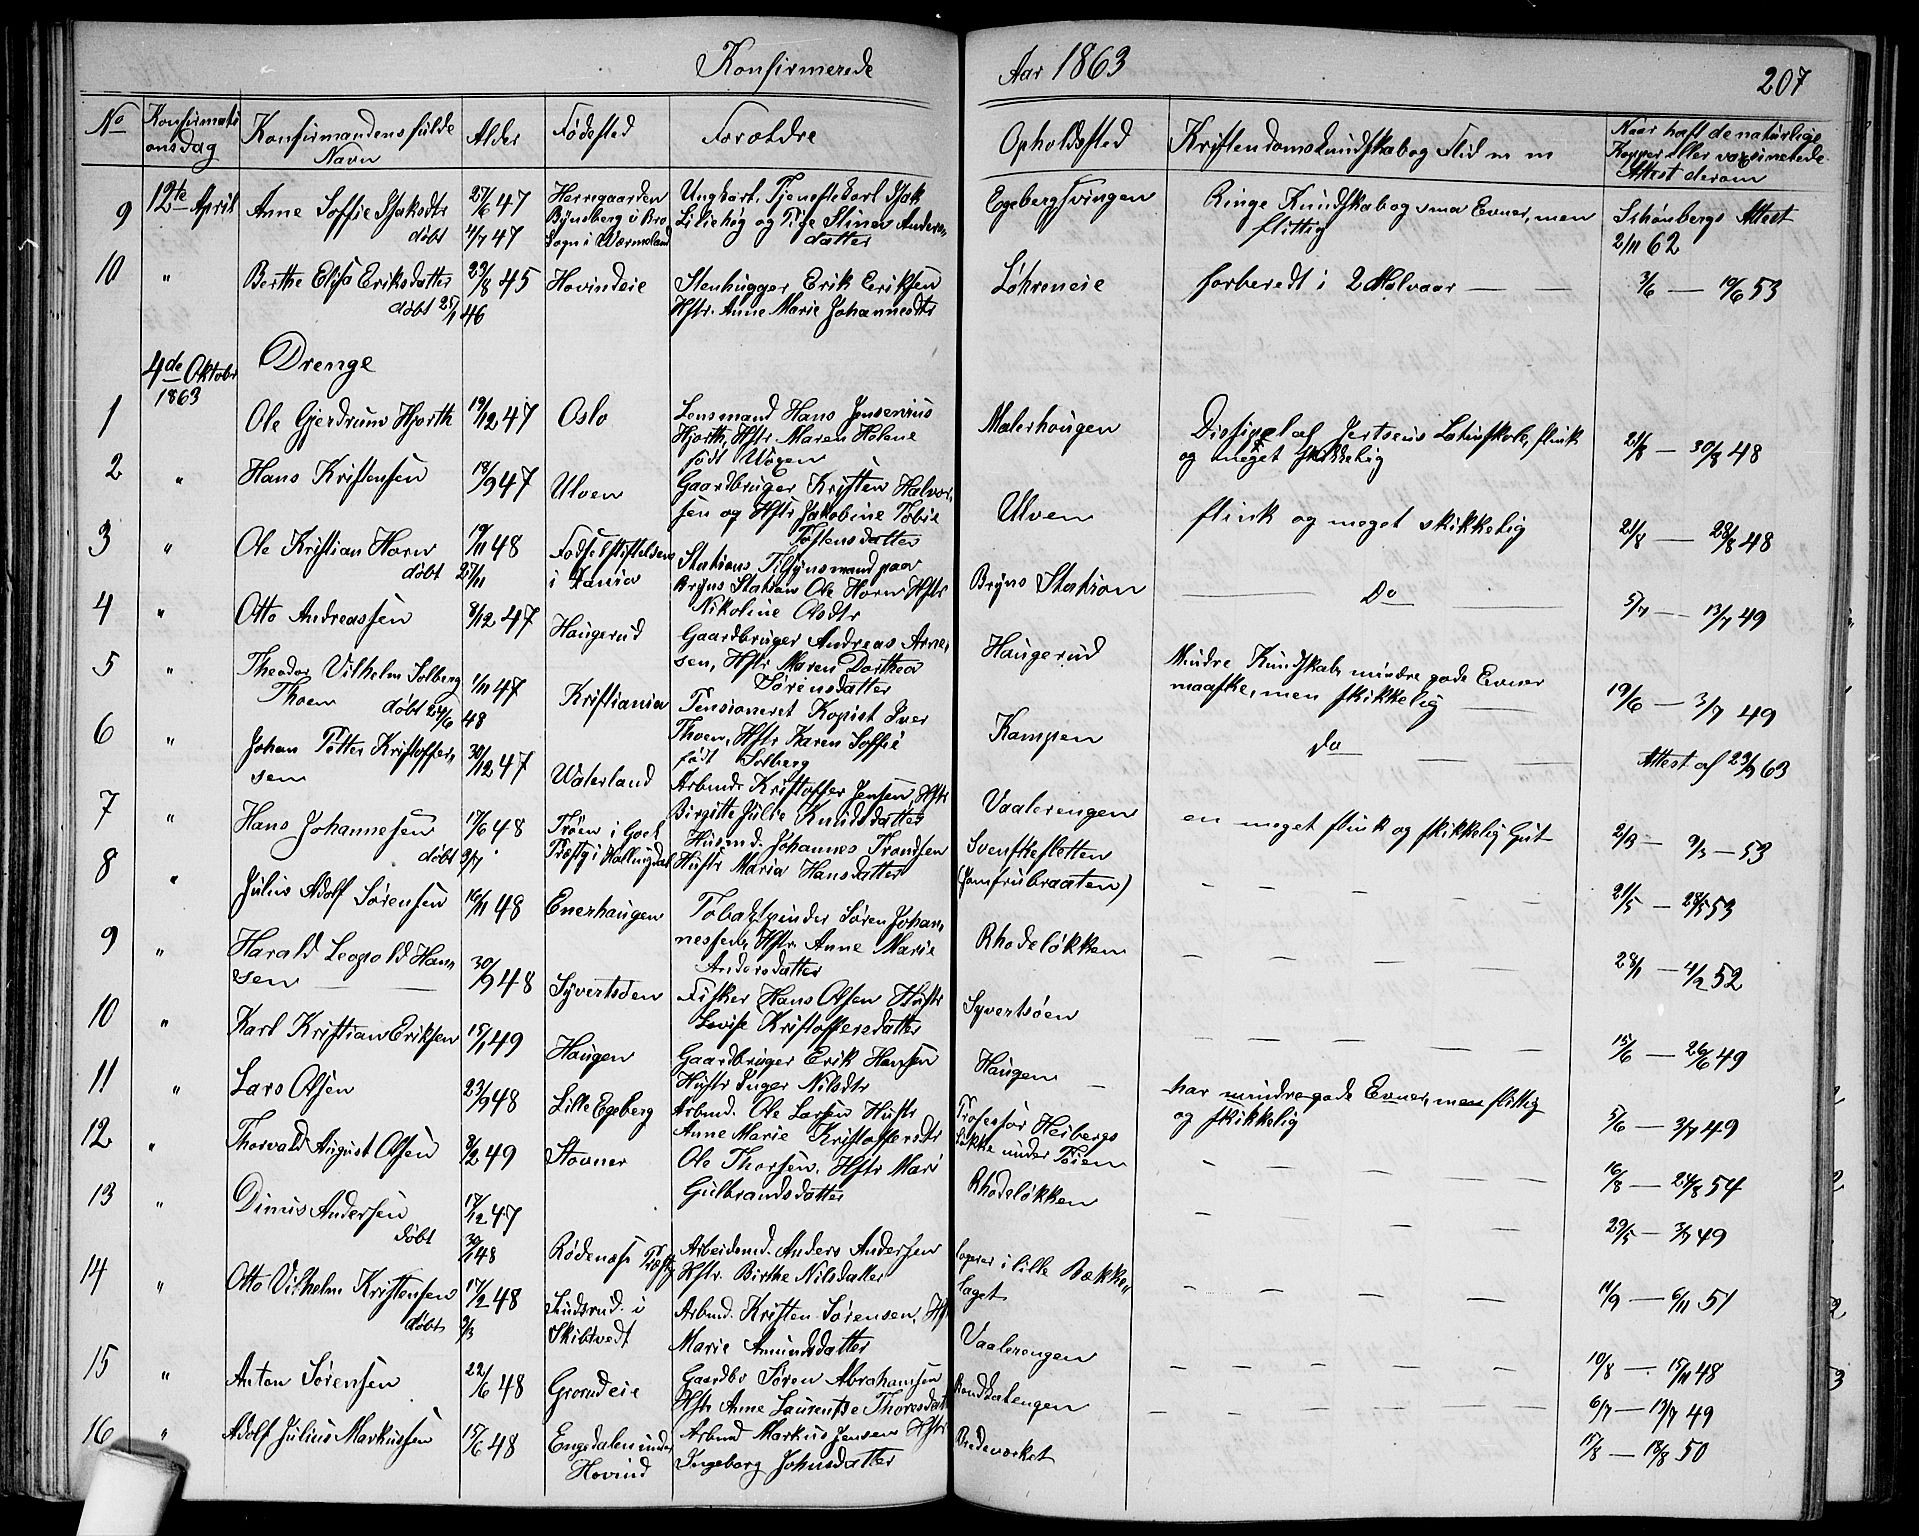 Konfirmerede Aar 1863 207
No Konfirmati onsdag Konfirmandens fulde Navn Alder Fødested Forældre Opholdssted Kristendomskundskab og Flid m m Naar haft de naturlige Kopper eller vaxinerede Attest derom
9 12te April Anne Soffie Isaksdtr 27/6 47 Herregaarden Ungkarl, Tjenestekarl Isak Egebergsvingen Ringe Kundskab og smaa Evner, men Schønbergs Attest
døbt 4/7 47 Byndberg i Bro Liliehög og Pige Stina Anders- flittig 2/11 62
Sogn i Wærmeland datter
10 " Berthe Elisa Eriksdatter 29/8 45 Hovindeie Stenhugger Erik Eriksen Løhreneie forberedt i 2 Halvaar — — 3/6 — 10/6 53
døbt 25/1 46 Hstr. Anne Marie Johannesdtr
4de Oktobr Drenge
1863
1 Ole Gjerdrum Hjorth 19/12 47 Oslo Lensmand Hans Jensenius Malerhougen Discipel af Jertsens Latinskole, flink 21/8 — 30/8 48
Hjorth, Hstr Maren Helene og meget skikkelig
født Wogen
2 " Hans Kristensen 18/9 47 Ulven Gaardbruger Kristen Halvor- Ulven flink og meget skikkelig 21/8 — 28/8 48
sen og Hstr Jakobine Tobie
Tostensdatter
3 " Ole Kristian Horn 19/11 48 Fødselsstiftelsen Stations Tilsynsmand paa Bryns Station — Do — 5/7 — 13/7 49
døbt 27/11 i Xania Bryns Station Ole Horn Hstr
Nikoline Olsdtr
4 " Otto Andreassen 8/12 47 Haugerud Gaardbruger Andreas Arne- Haugerud Mindre Kundskab, mindre gode Evner 19/6 — 3/7 49
sen, Hstr Maren Dorthea maaske, men skikkelig —
Sørensdatter
5 " Theodor Vilhelm Solberg 1/11 47 Kristiania Pensioneret Kopist Iver Kampen Do Attest af 23/9 63
Thoen døbt 24/6 48 Thoen, Hstr Karen Soffie
født Solberg
6 " Johan Petter Kristoffer- 30/12 47 Waterland Arbmd. Kristoffer Jensen, Hstr Vaalerengen en meget flink og skikkelig Gut 2/3 — 9/3 — 53
sen Birgitte Julie Knudsdatter
7 " Hans Johannesen 17/6 48 Trøen i Goel Husmd. Johannes Trondsen Svenskesletten — — — — 21/5 — 28/5 53
døbt 9/7 Præstg i Hallingdal Hustr Maria Hansdatter (Jomfrubraaten)
8 " Julius Adolf Sørensen 16/11 48 Enerhaugen Tobakspinder Søren Johan- Rhodeløkken — — — — 28/1 — 4/2 52
nessen, Hstr. Anne Marie
Andersdatter
9 " Harald Leopold Han- 30/9 48 Syvertsøen Fisker Hans Olsen Hustr Syvertsøen — — — — 15/6 — 26/6 49
sen — — Lovise Kristoffersdatter
10 " Karl Kristian Eriksen 15/1 49 Haugen Gaardbruger Erik Hansen Haugen — har mindre gode Evner, men flittig 5/6 — 3/7 49
Hustr Inger Nilsdtr og skikkelig
11 " Lars Olsen 23/9 48 Lille Egeberg Arbmd. Ole Larsen Hustr Professor Heibergs — — — — 16/8 — 24/8 54
Anne Marie Kristoffersdtr Løkke under Tøien
12 " Thorvald August Olsen 8/2 49 Stovner Ole Thorsen, Hstr Mari Rhodeløkken — — — — 29/5 — 3/7 49
Gulbrandsdatter
13 " Dinus Andersen 17/12 47 Rødenæs Præstg Arbeidsmd. Anders Andersen logerer i lille Bække- — — — — 11/9 — 6/11 51
døbt 30/1 48 Hstr. Birthe Nilsdatter laget
14 " Otto Vilhelm Kristensen 17/2 48 i Arbmd. Kristen Sørensen, Hst Vaalerengen — — — — 10/8 — 15/11 48
døbt 9/3 Skibtvedt Marie Amundsdatter
15 " Anton Sørensen 22/6 48 Grorudeie Gaardbr Søren Abrahamsen — — — — 6/7 — 13/7 49
Hstr Anne Laurentse Thoresdatt
16 " Adolf Julius Markussen 15/6 48 Engedalen under Arbmd Markus Jensen Hstr Bredeværket 11/8 — 18/8 50
Hovind Ingeborg Johnsdatter